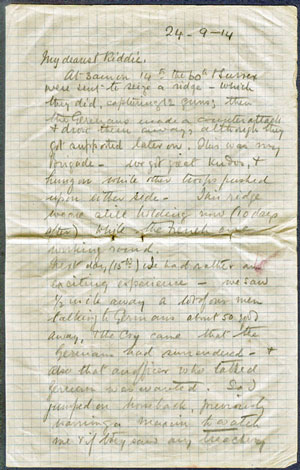 24-9-14
My dearest Kiddie,
At 3am on 14th the 60th & Surrex
were sent to seize a ridge - which
they did, capturing 12 guns; then
the Germans made a counter attack
& drove them away although they
got supported later on. This was my
Brigade - We got great kudos, &
hung on while other troops pushed
up on either side - This ridge
we are still holding now (10 days
after) while the French are
working round.
Next day, (15th) I had rather an
exciting experience - we saw
½ mile away a lot of our men
talking to Germans about 50 yds
away, & the cry came that the
Germans had surrendered - &
also that an officer who talked
German was wanted. So I
jumped on horseback, previously
warning a maxim to watch
me & if they saw any treachery